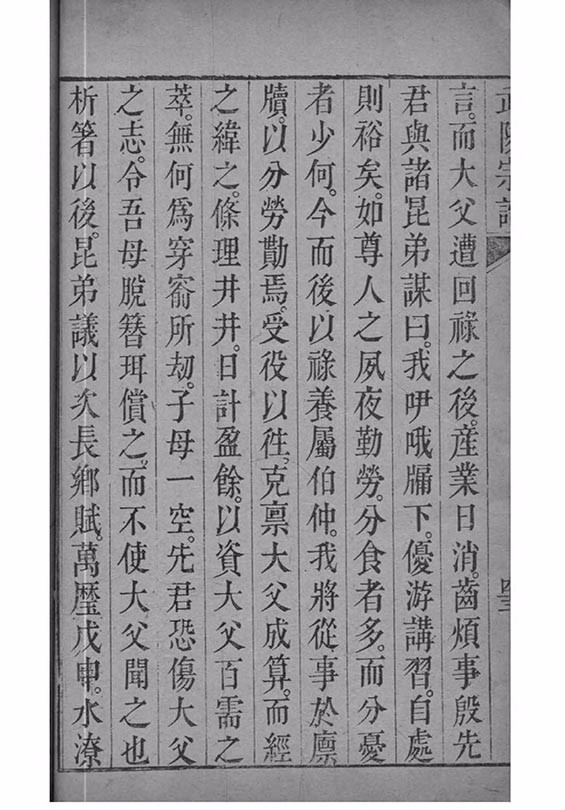 言。而大父遭回祿之後。産業日消。齒煩事殷。先
君與諸昆弟謀曰。我吚哦牖下。優游講習。自處
則裕矣。如尊人之夙夜勤勞。分食者多。而分憂
者少何。今而後以祿養屬伯仲。我將從事於廪
牘。以分勞勩焉。受役以徃。克禀大父成算。而經
之緯之。條理井井。日計盈餘。以資大父百需之
萃。無何爲穿窬所劫。子母一空。先君恐傷大父
之志。令吾母脫簪珥償之。而不使大父聞之也
析箸以後。昆弟議以次長鄉賦。萬曆戊申。水潦